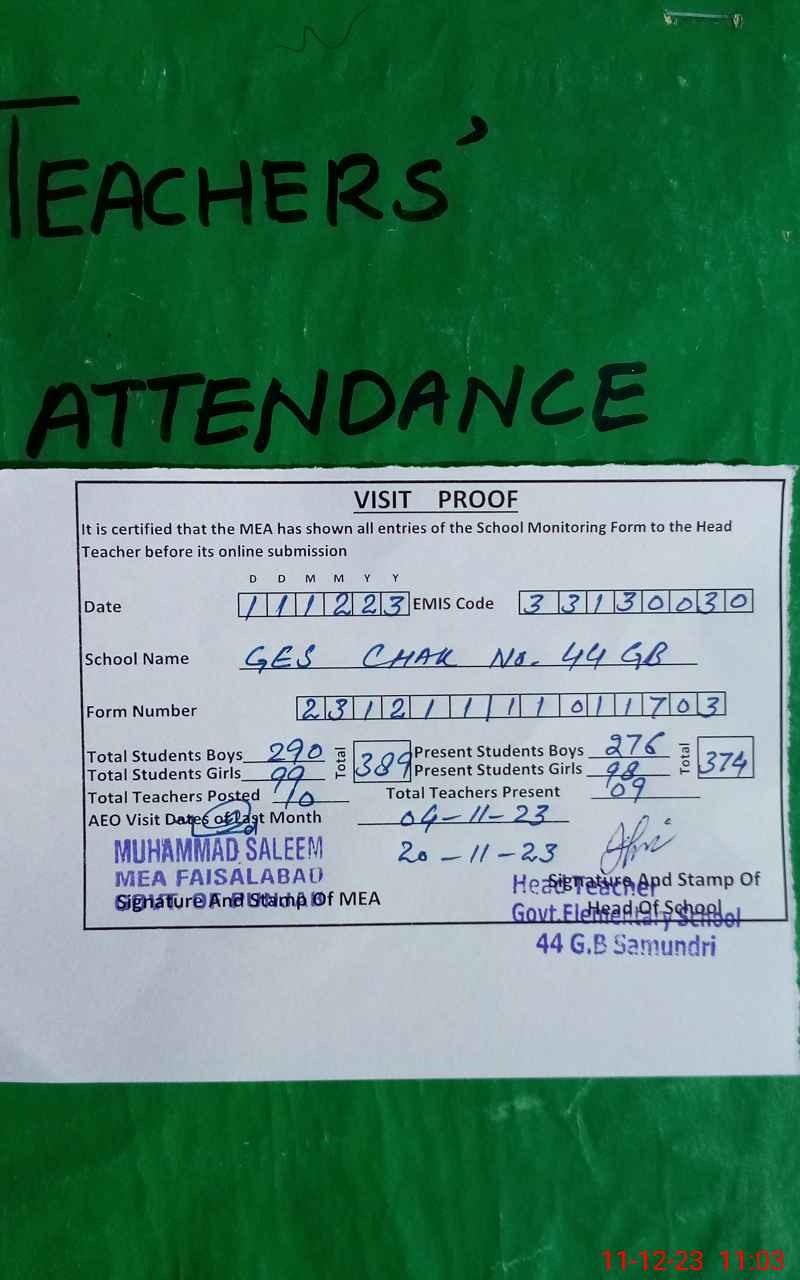 TEACHERS'
ATTENDANCE
VISIT PROOF
It is certified that the MEA has shown all entries of the School Monitoring Form to the Head
Teacher before its online submission
D D M M Y Y
Date 111223 EMIS Code 33130030
School Name GES CHAK No. 44 GB
Form Number 231211111011703
Total Students Boys 290 Total 389 Present Students Boys 276 Total 374
Total Students Girls 99 Present Students Girls 98
Total Teachers Posted 10 Total Teachers Present 09
AEO Visit Dates of Last Month 04-11-23
20-11-23
MUHAMMAD SALEEM
MEA FAISALABAD
GOVT. OF PUNJAB
Signature And Stamp Of MEA
Signature And Stamp Of
Head Of School
Head Teacher
Govt. Elementary School
44 G.B Samundri
11-12-23 11:03